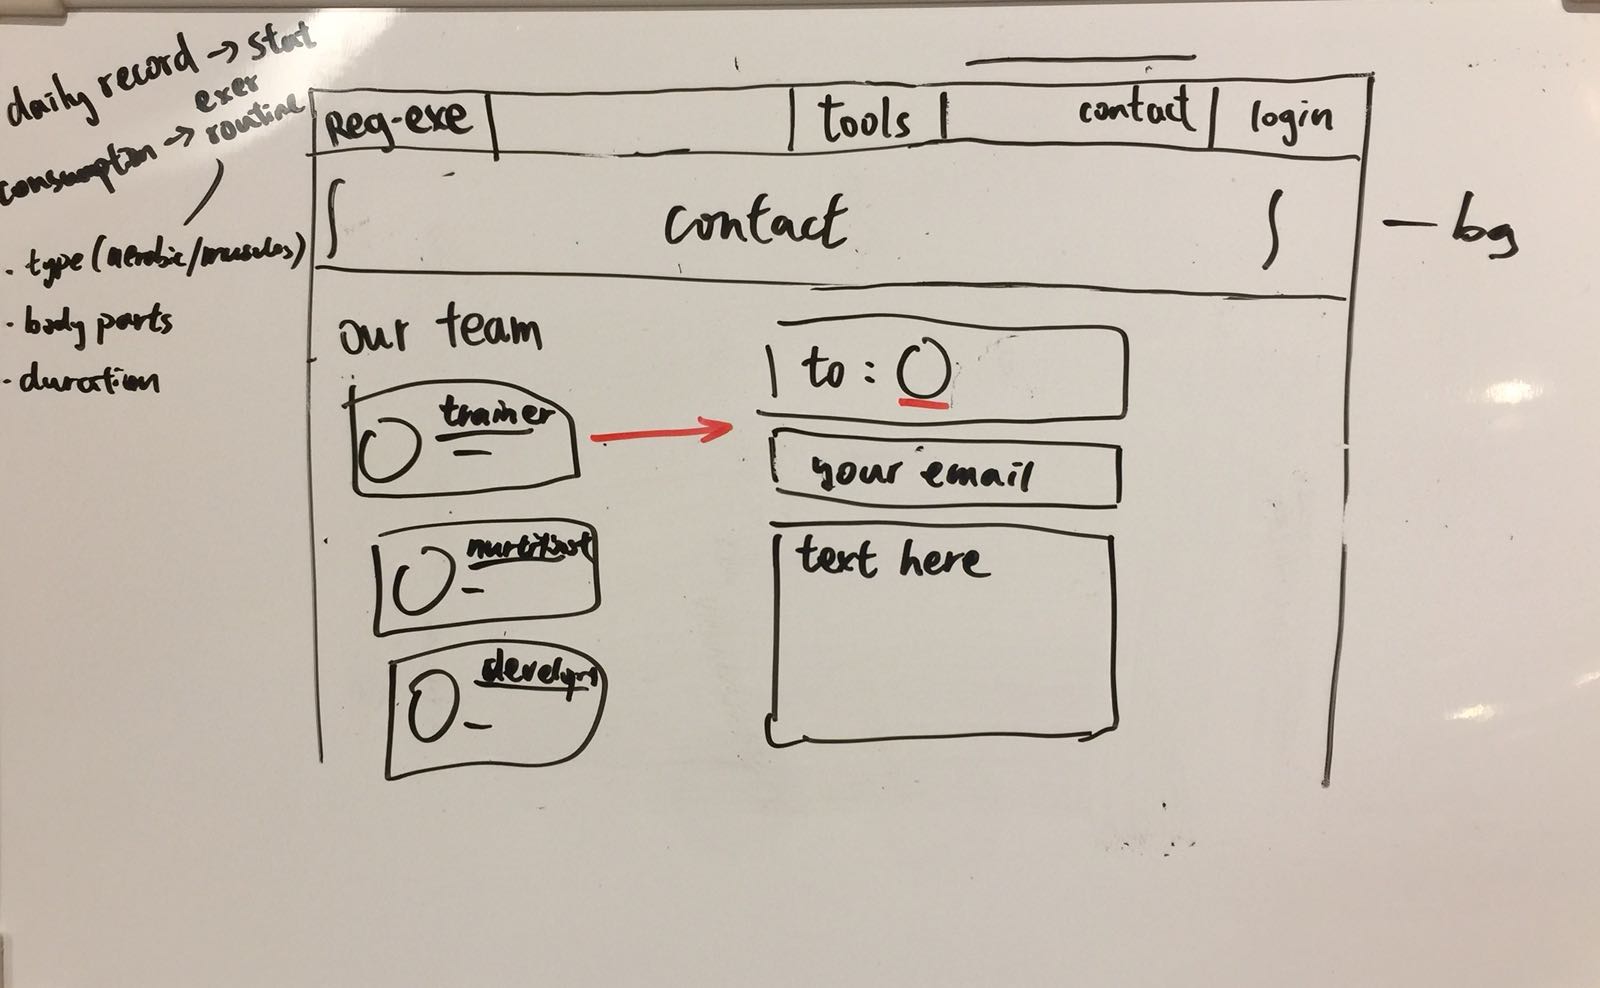 daily record → stat
exer
consumption → routine
· type (aerobic/muscles)
· body parts
· duration
Reg-exe
tools
contact
login
contact
— bg
our team
trainer
to :
your email
text here